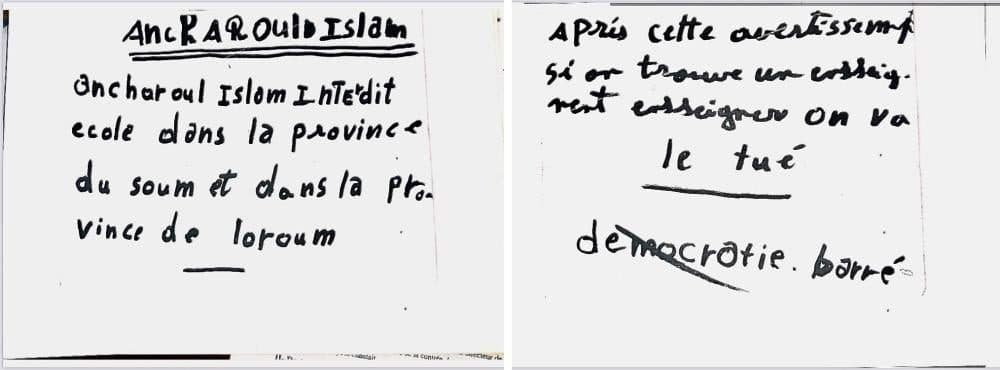 AncKAROulD Islam
ancharoul Islam InTErdit
ecole dans la province
du soum et dans la pro-
vince de loroum
Après cette avertissempt
si on trouve un ensseig-
nent ensseigner on va
le tué
démocratie. barré